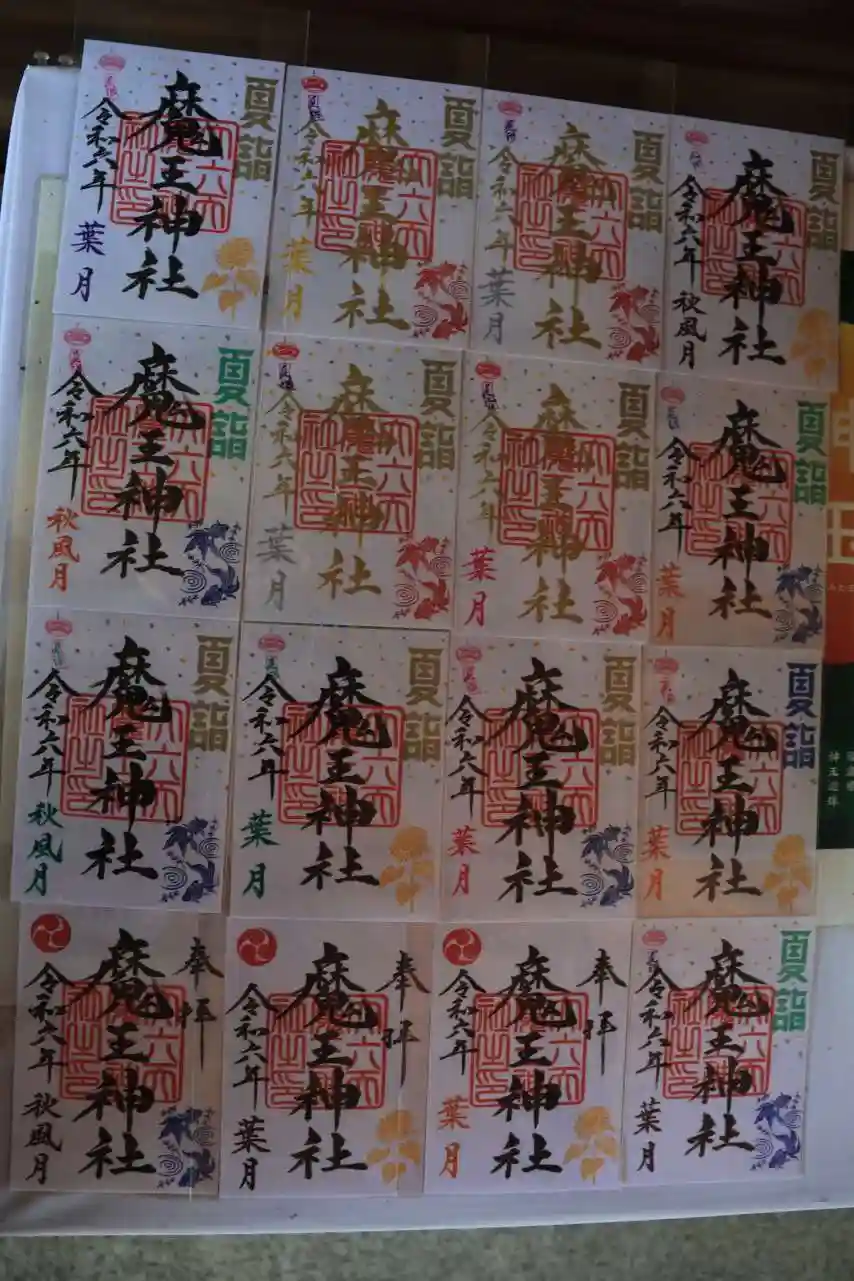 夏詣
魔王神社
令和六年 葉月
夏詣
魔王神社
令和六年 葉月
夏詣
魔王神社
令和六年 葉月
夏詣
魔王神社
令和六年 秋風月
夏詣
魔王神社
令和六年 秋風月
夏詣
魔王神社
令和六年 葉月
夏詣
魔王神社
令和六年 葉月
夏詣
魔王神社
令和六年 葉月
夏詣
魔王神社
令和六年 秋風月
夏詣
魔王神社
令和六年 葉月
夏詣
魔王神社
令和六年 葉月
夏詣
魔王神社
令和六年 葉月
奉拝
魔王神社
令和六年 秋風月
奉拝
魔王神社
令和六年 葉月
奉拝
魔王神社
令和六年 葉月
夏詣
魔王神社
令和六年 葉月
神玉巡拝